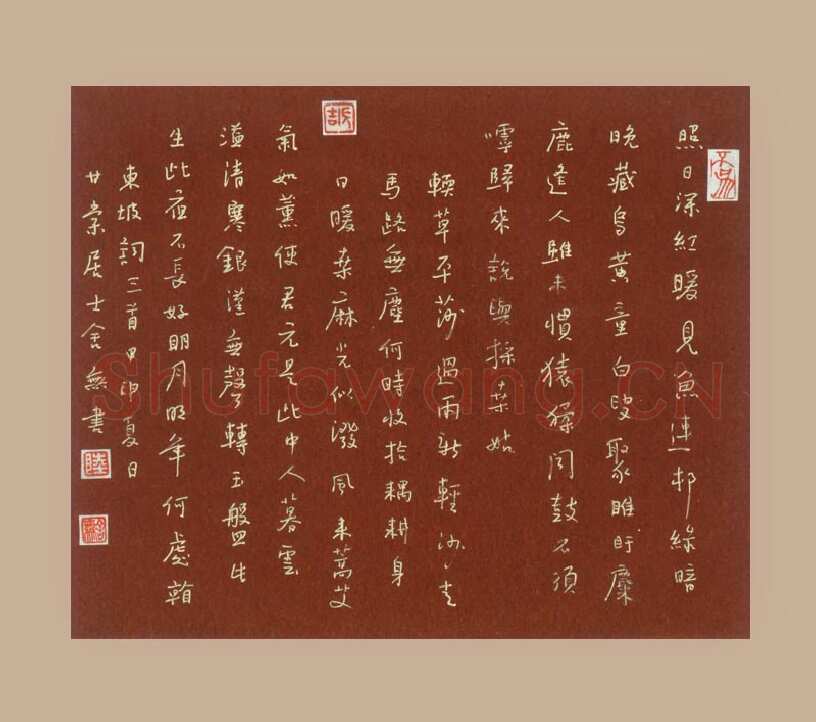 照日深紅暖見魚連邨綠暗
晚藏烏黄童白叟聚睢盱麋
鹿逢人雖未慣猿猱聞鼓不須
嘑歸來說與採桒姑
輭草平莎過雨新輕沙走
馬路無塵何時收拾耦耕身
日暖桒麻光似潑風來蒿艾
氣如薰使君元是此中人暮雲
溢清寒銀漢無聲轉玉盤此
生此夜不長好明月明年何處看
東坡詞三首甲申夏日
甘棠居士舍無書
陸
Shufawang.CN